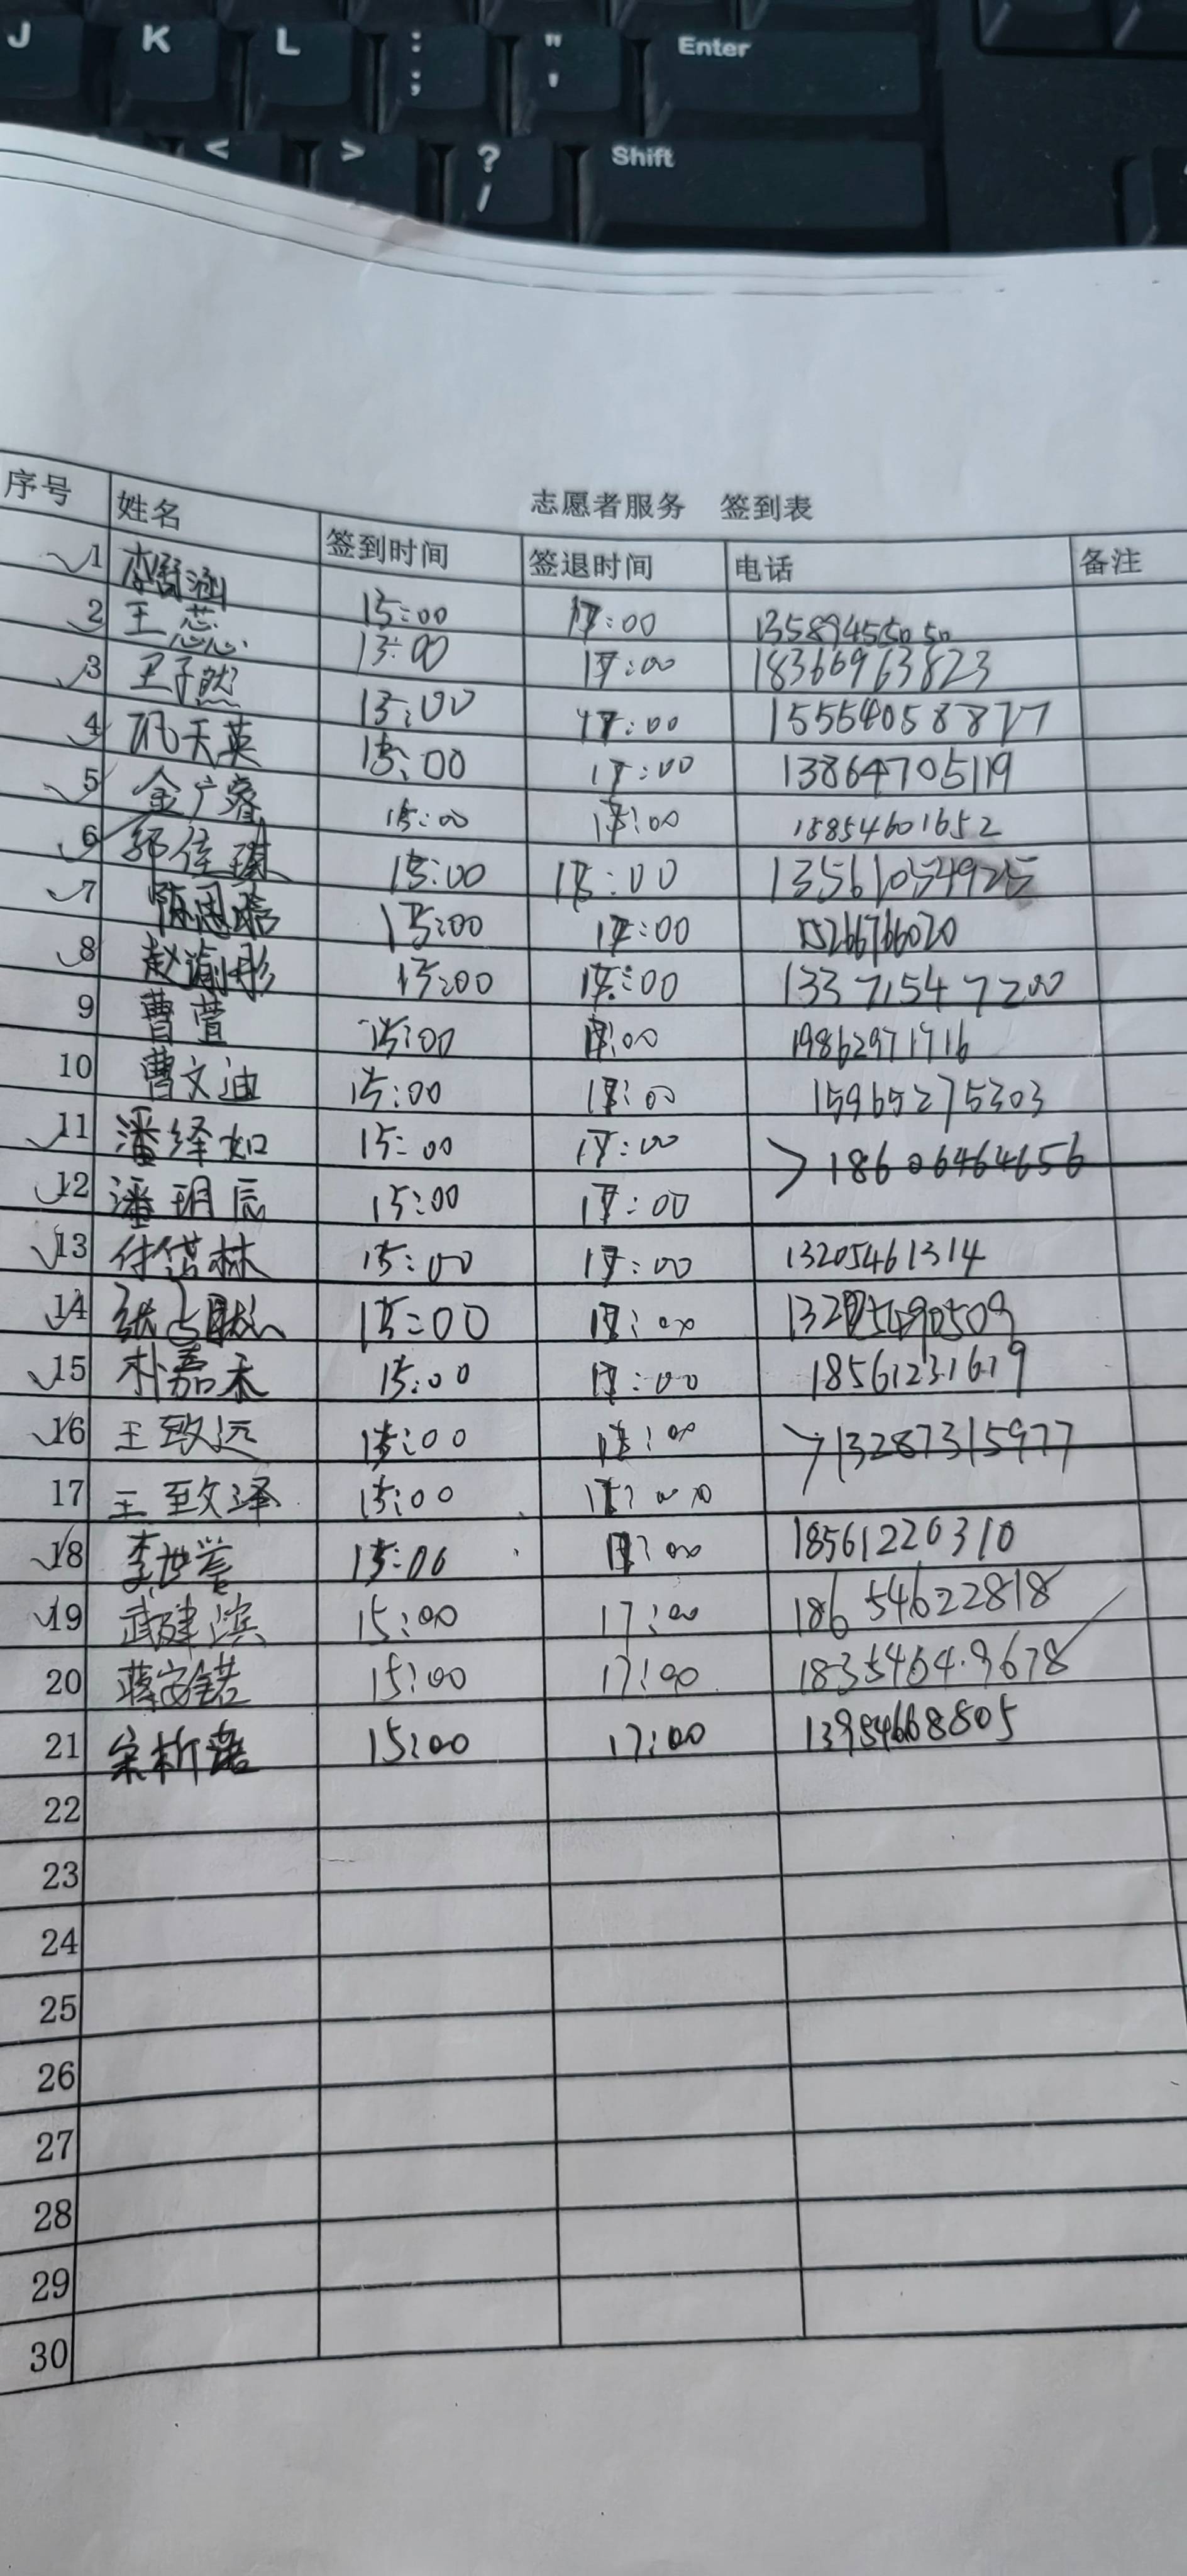 J K L : ; " ' Enter
< > ? / Shift
志愿者服务 签到表
序号 姓名 签到时间 签退时间 电话 备注
1 李舒涵 15:00 17:00
2 王蕊 15:00 17:00 18366963823
3 王子然 15:00 17:00 15554058877
4 天英 15:00 17:00 13864705119
5 金广睿 15:00 17:00 15854601652
6 郭佳琪 15:00 17:00
7 陈思 15:00 17:00 15266766020
8 赵谕彤 15:00 17:00 13371547200
9 曹萱 15:00 17:00 19862971716
10 曹文迪 15:00 17:00 15965275303
11 潘绎如 15:00 17:00 18606464656
12 潘玥辰 15:00 17:00
13 林 15:00 17:00 13205461314
14 张 15:00 17:00
15 朴嘉禾 15:00 17:00 18561231619
16 王致远 15:00 17:00 13287315977
17 王致泽 15:00 17:00
18 李世誉 15:00 17:00 18561220310
19 武建滨 15:00 17:00 18654622818
20 蒋 15:00 17:00 18354649678
21 宋析诺 15:00 17:00 13954668805
22
23
24
25
26
27
28
29
30